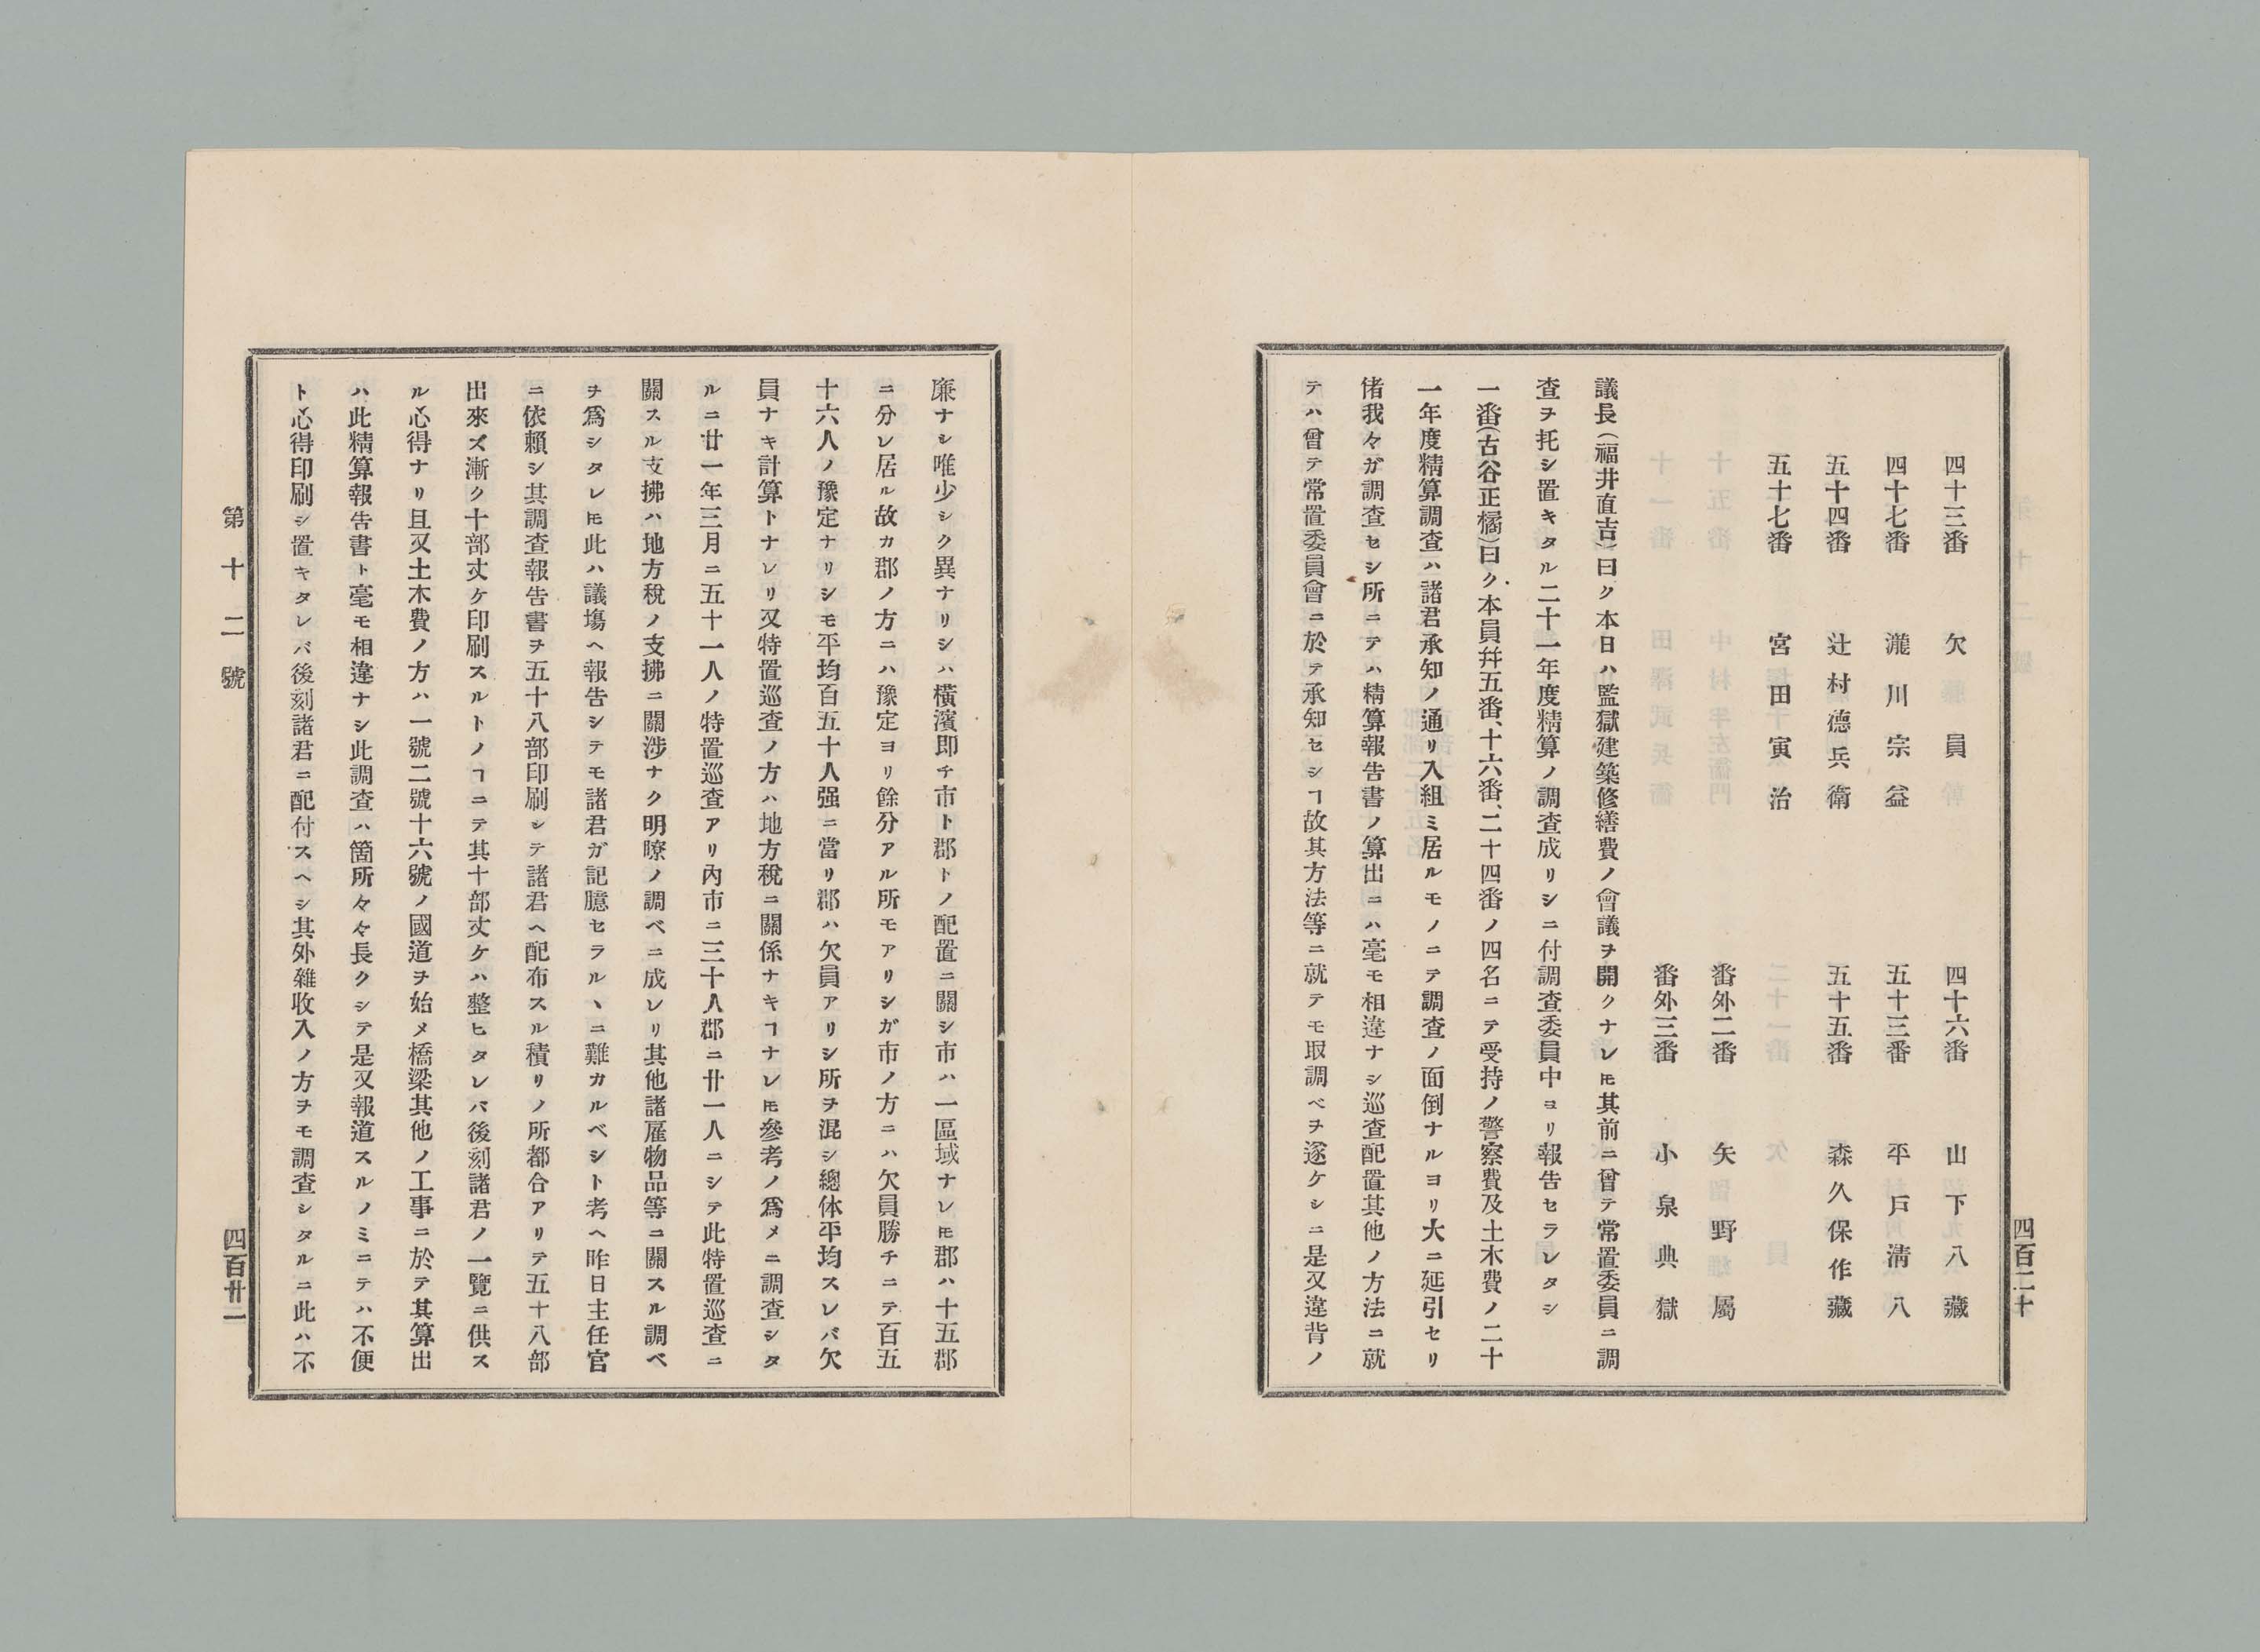 四百二十
四十三番　欠員　四十六番　山下八藏
四十七番　瀧川宗益　五十三番　平戸淸八
五十四番　辻村德兵衛　五十五番　森久保作藏
五十七番　宮田寅治
番外二番　矢野屬
番外三番　小泉典獄
議長（福井直吉）曰ク本日ハ監獄建築修繕費ノ會議ヲ開クナレㇳモ其前ニ曾テ常置委員ニ調
査ヲ托シ置キタル二十一年度精算ノ調査成リシニ付調査委員中ヨリ報告セラレタシ
一番（古谷正橘）曰ク本員幷五番、十六番、二十四番ノ四名ニテ受持ノ警察費及土木費ノ二十
一年度精算調査ハ諸君承知ノ通リ入組ミ居ルモノニテ調査ノ面倒ナルヨリ大ニ延引セリ
偖我々ガ調査セシ所ニテハ精算報告書ノ算出ニハ毫モ相違ナシ巡査配置其他ノ方法ニ就
テハ曾テ常置委員會ニ於テ承知セシヿ故其方法等ニ就テモ取調ベヲ遂ケシニ是又違背ノ
廉ナシ唯少シク異ナリシハ橫濱即チ市ト郡トノ配置ニ關シ市ハ一區域ナレㇳモ郡ハ十五郡
ニ分レ居ル故カ郡ノ方ニハ豫定ヨリ餘分アル所モアリシガ市ノ方ニハ欠員勝チニテ百五
十六人ノ豫定ナリシモ平均百五十人强ニ當リ郡ハ欠員アリシ所ヲ混シ總体平均スレバ欠
員ナキ計算トナレリ又特置巡査ノ方ハ地方稅ニ關係ナキヿナレㇳモ參考ノ爲メニ調査シタ
ルニ廿一年三月ニ五十一人ノ特置巡査アリ內市ニ三十人郡ニ廿一人ニシテ此特置巡査ニ
關スル支拂ハ地方稅ノ支拂ニ關涉ナク明瞭ノ調ベニ成レリ其他諸雇物品等ニ關スル調ベ
ヲ爲シタレㇳモ此ハ議塲ヘ報告シテモ諸君ガ記臆セラルヽニ難カルベシト考ヘ昨日主任官
ニ依賴シ其調査報告書ヲ五十八部印刷シテ諸君ヘ配布スル積リノ所都合アリテ五十八部
出來ズ漸ク十部丈ケ印刷スルトノヿニテ其十部丈ケハ整ヒタレバ後刻諸君ノ一覽ニ供ス
ル心得ナリ且又土木費ノ方ハ一號二號十六號ノ國道ヲ始メ橋梁其他ノ工事ニ於テ其算出
ハ此精算報告書ト毫モ相違ナシ此調査ハ箇所々々長クシテ是又報道スルノミニテハ不便
ト心得印刷シ置キタレバ後刻諸君ニ配付スヘシ其外雜收入ノ方ヲモ調査シタルニ此ハ不
第十二號　四百廿一